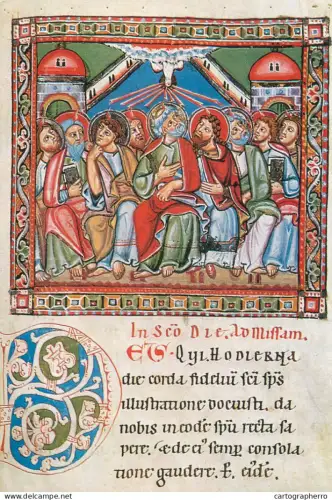 In sc̄o Die. Ad Missam.
EUS· QUI·HODIERNA
die corda fidelium sc̄i sp̄s
illustratione docuisti. da
nobis in eode sp̄u recta sa
pere. & de ei' semp consola
tione gaudere. P. eide.
www.delcampe.net
cartographerro